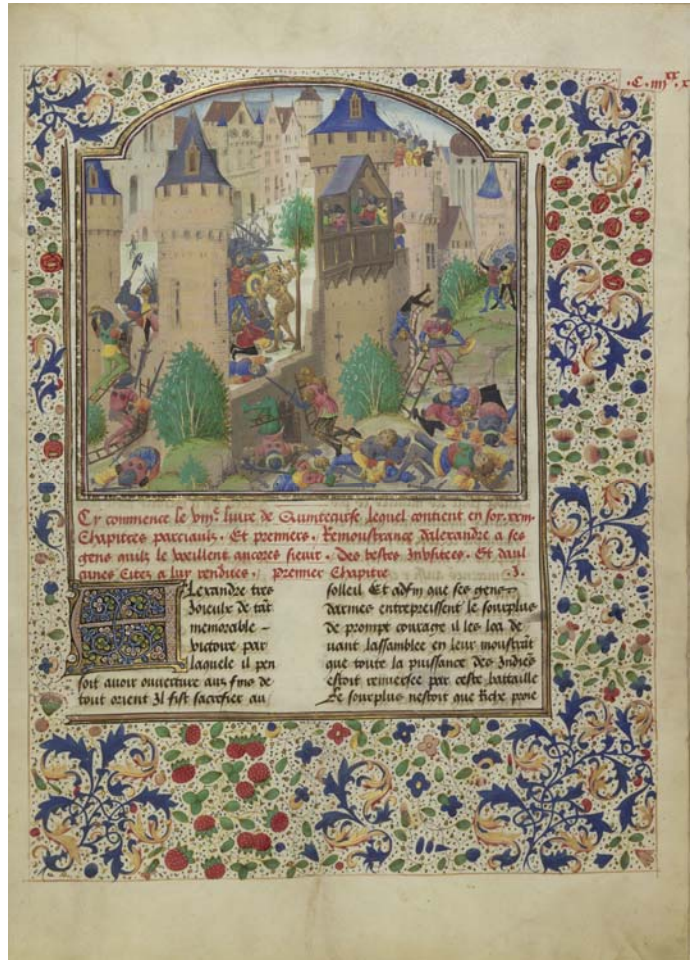 .C. iiijxx. x
Cy commence le viije. livre de Quintecurse lequel contient en soy. xxiij.
Chapitres parciaulx. Et premiers. Remoustrance dalexandre a ses
gens quilz le voeillent ancores sievir. Des bestes Inusitees. Et daul
cunes Citez a luy rendues. / premier Chapitre .j.
Alexandre tres
Joieulx de tāt
memorable –
victoire par
laquele il pen
soit avoir ouverture aux fins de
tout orient Il fist sacrefier au
solleil Et adfin que ses gens
darmes entrepreissent le sourplus
de prompt courage il les loa de
vant lassamblee en leur moustrāt
que toute la puissance des Indiēs
estoit renversee par ceste battaille
Le sourplus nestoit que Riche proie